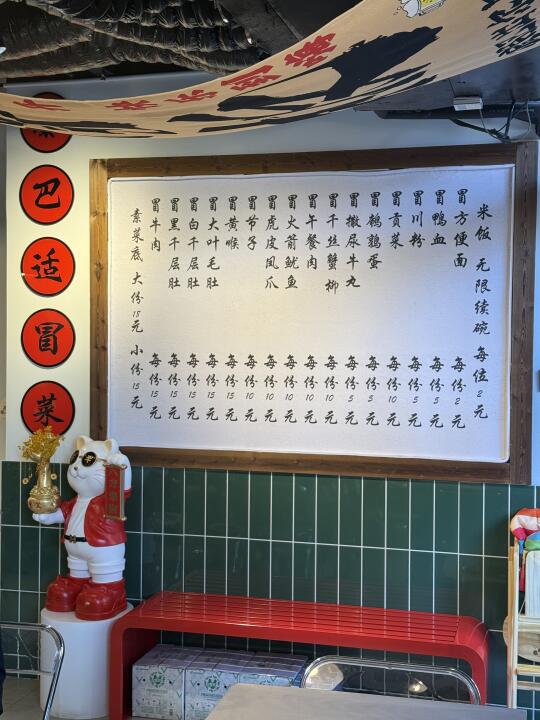 米饭 无限续碗 每位2元
冒方便面 每份2元
冒鸭血 每份5元
冒川粉 每份5元
冒贡菜 每份10元
冒鹌鹑蛋 每份5元
冒撒尿牛丸 每份5元
冒千丝蟹柳 每份10元
冒午餐肉 每份10元
冒火箭鱿鱼 每份10元
冒虎皮凤爪 每份10元
冒节子 每份10元
冒黄喉 每份15元
冒大叶毛肚 每份15元
冒白千层肚 每份15元
冒黑千层肚 每份15元
冒牛肉 每份15元
素菜底 大份18元 小份15元
巴适冒菜